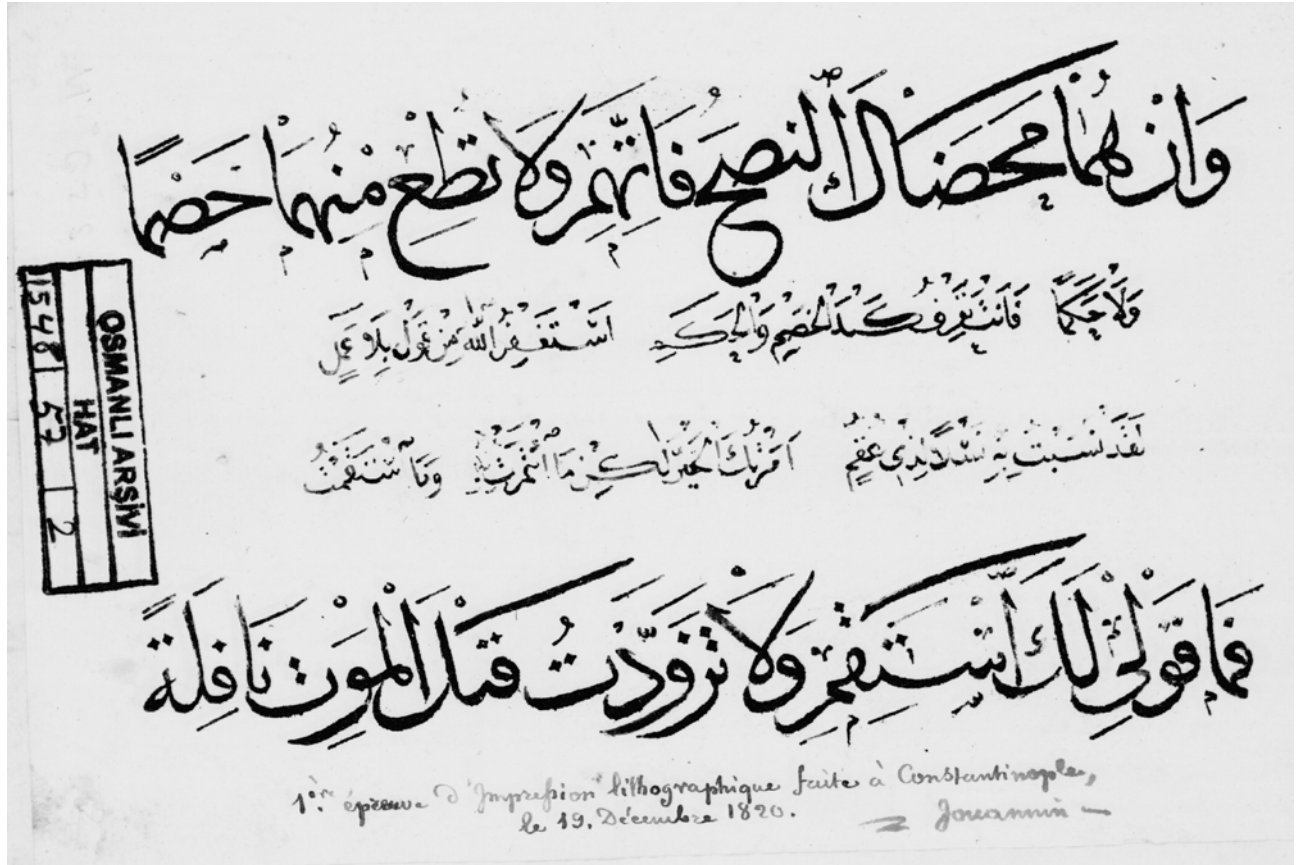 وَاِنْ هُمَا مَحَضَاكَ النُّصْحَ فَاتَّهِمِ وَلَا تُطِعْ مِنْهُمَا خَصْمًا
وَلَا حَكَمًا فَاَنْتَ تَعْرِفُ كَيْدَ الْخَصْمِ وَالْحَكَمِ اَسْتَغْفِرُ اللّٰهَ مِنْ قَوْلٍ بِلَا عَمَلٍ
لَقَدْ نَسَبْتُ بِهِ نَسْلًا لِذِى عُقُمِ اَمَرْتُكَ الْخَيْرَ لٰكِنْ مَا ائْتَمَرْتُ بِهِ وَمَا اسْتَقَمْتُ
فَمَا قَوْلِى لَكَ اسْتَقِمِ وَلَا تَزَوَّدْتُ قَبْلَ الْمَوْتِ نَافِلَةً
1ère épreuve d'Impression lithographique faite à Constantinople,
le 19. Décembre 1820. Jouannin
OSMANLI ARŞİVİ
HAT
1548 57 2